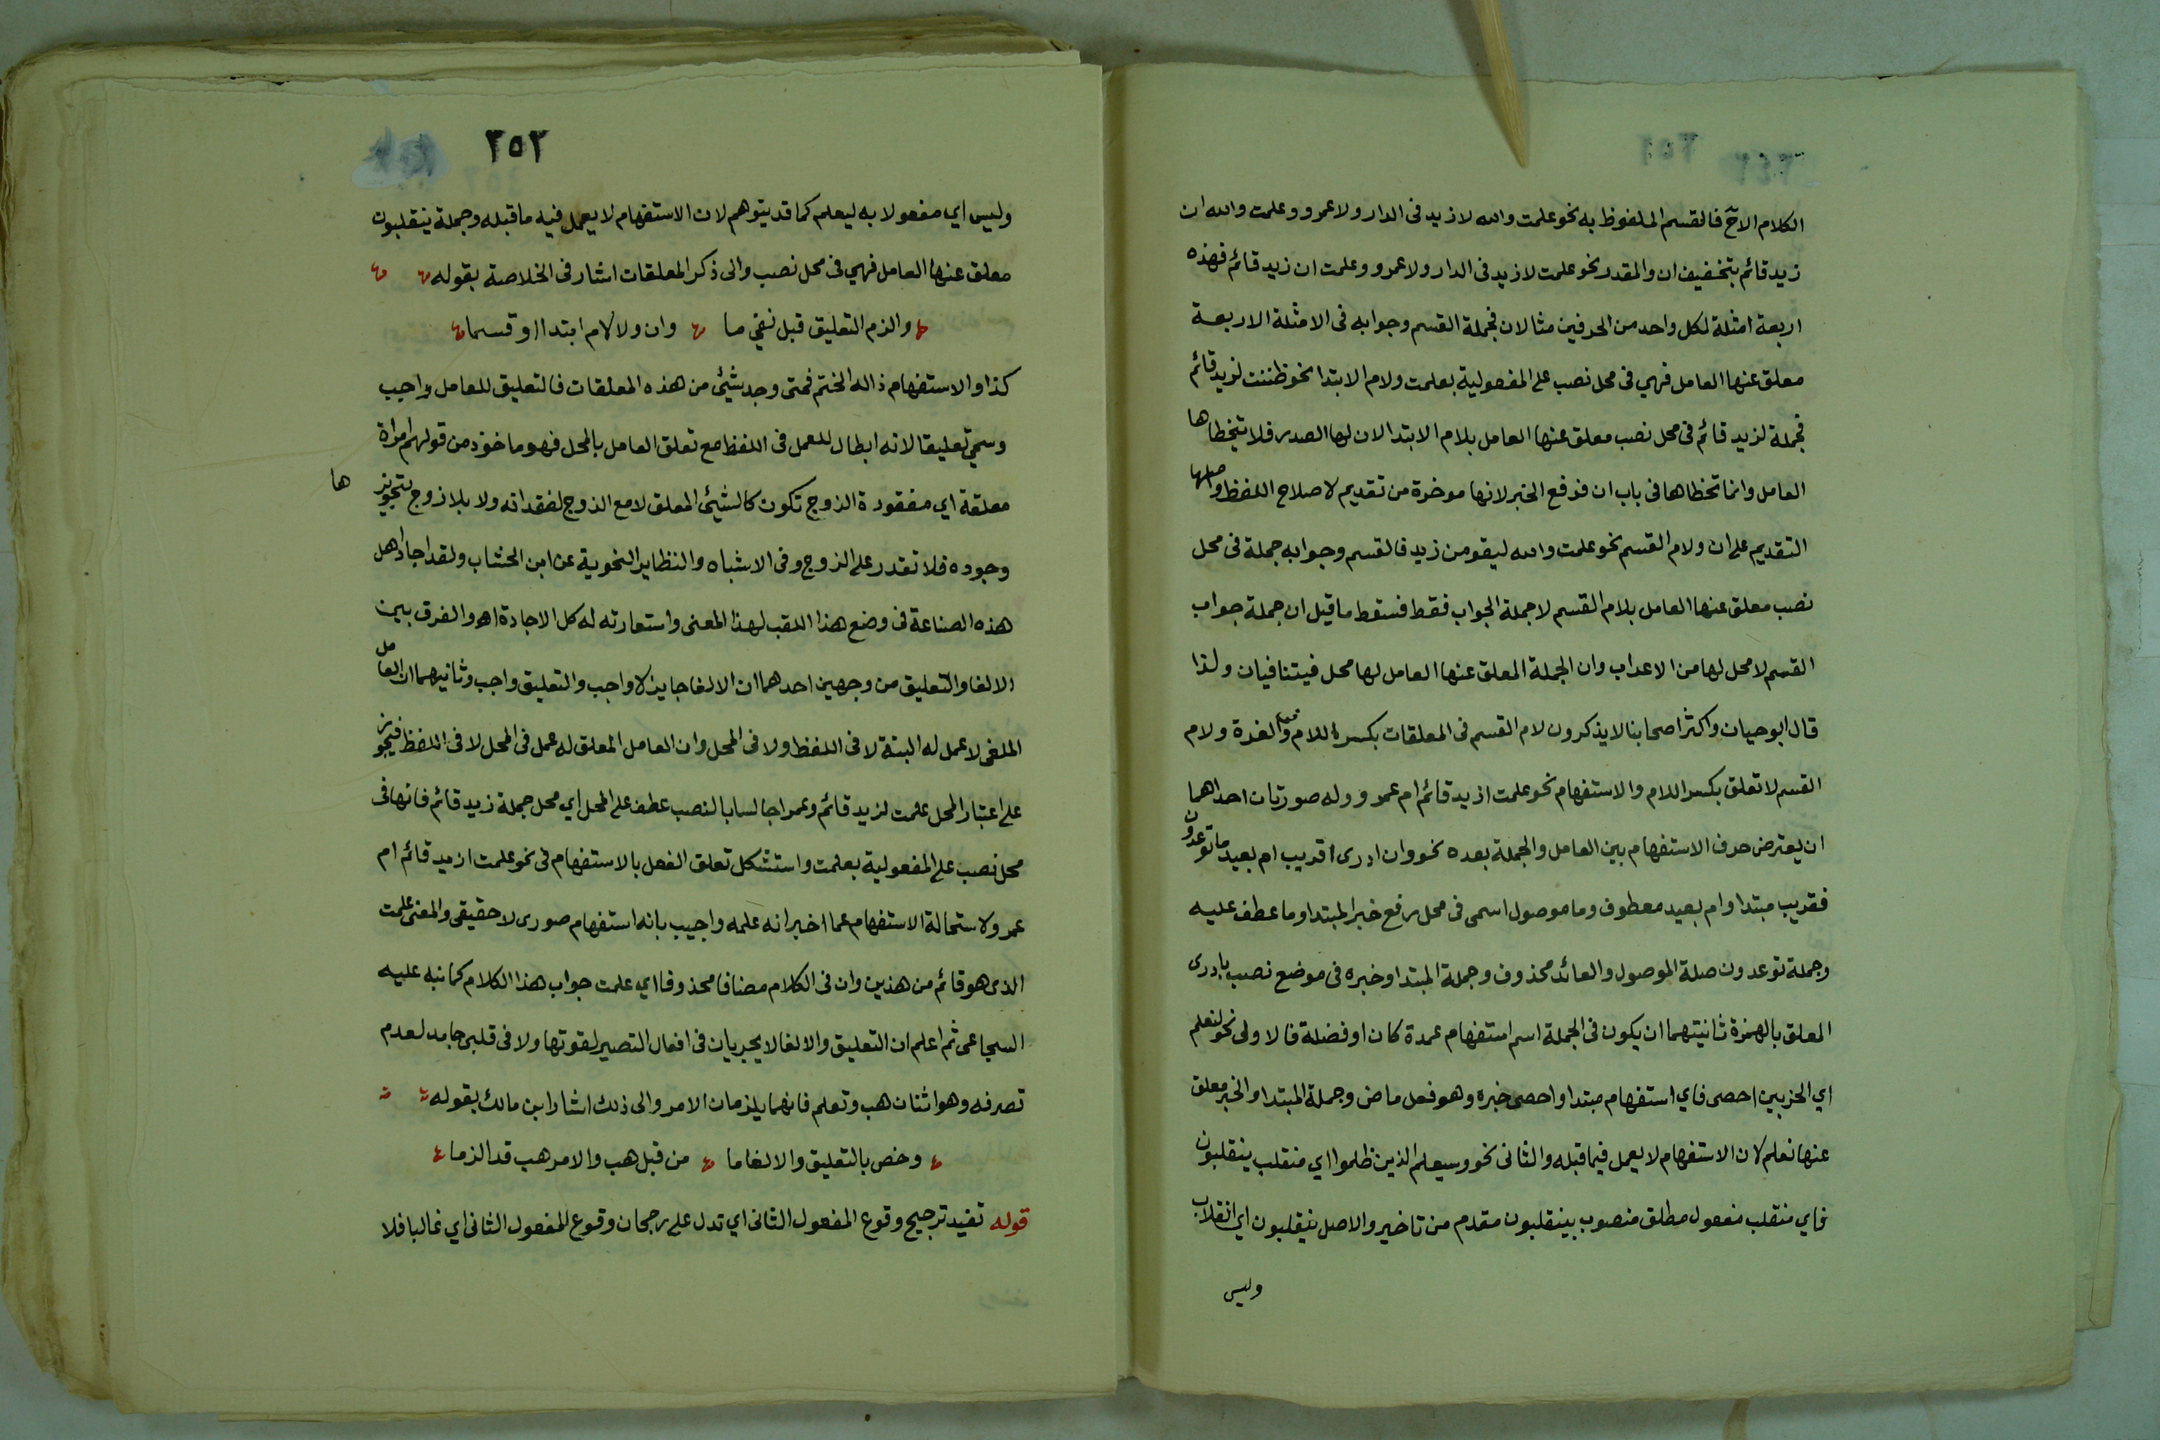 الكلام الاخ فالقسم الملفوظ به نحو علمت والله لا زيد فى الدار ولا عمرو وعلمت والله ان
زيد قائم بتخفيف ان والمقدر نحو علمت لا زيد فى الدار ولا عمرو وعلمت ان زيد قائم فهذه
اربعة امثلة لكل واحد من الحرفين مثالان فجملة القسم وجوابه فى الامثلة الاربعة
معلق عنها العامل فهي فى محل نصب على المفعولية بعلمت ولام الابتدا نحو ظننت لزيد قائم
فجملة لزيد قائم فى محل نصب معلق عنها العامل بلام الابتدا لان لها الصدر فلا يتخطاها
العامل وانما تخطاها فى باب ان فرفع الخبر لانها موخرة من تقديم لاصلاح اللفظ واصلها
التقديم على ان ولام القسم نحو علمت والله ليقومن زيد فالقسم وجوابه جملة فى محل
نصب معلق عنها العامل بلام القسم لا جملة الجواب فقط فسقط ما قيل ان جملة جواب
القسم لا محل لها من الاعراب وان الجملة المعلق عنها العامل لها محل فيتنافيان ولذا
قال ابو حيان واكثر اصحابنا لا يذكرون لام القسم فى المعلقات بكسر اللام ولام
القسم لا تعلق بكسر اللام والاستفهام نحو علمت ازيد قائم ام عمرو وله صورتان احداهما
ان يعترض حرف الاستفهام بين العامل والجملة بعده نحو وان ادرى اقريب ام بعيد ما توعدون
فقريب مبتدا وام بعيد معطوف وما موصول اسمى فى محل رفع خبر المبتدا وما عطف عليه
وجملة توعدون صلة الموصول والعائد محذوف وجملة المبتدا وخبره فى موضع نصب بادرى
المعلق بالهمزة ثانيتهما ان يكون فى الجملة اسم استفهام عمدة كان او فضلة فالاولى نحو لنعلم
اي الحزبين احصى فاي استفهام مبتدا واحصى خبره وهو فعل ماض وجملة المبتدا والخبر معلق
عنها نعلم لان الاستفهام لا يعمل فيما قبله والثانى نحو وسيعلم الذين ظلموا اي منقلب ينقلبون
فاي منقلب مفعول مطلق منصوب بينقلبون مقدم من تاخير والاصل ينقلبون اي انقلاب
وليس
٢٥٢
وليس اي مفعولا به ليعلم كما قد يتوهم لان الاستفهام لا يعمل فيه ما قبله وجملة ينقلبون
معلق عنها العامل فهي فى محل نصب والى ذكر المعلقات اشار فى الخلاصة بقوله
والزم التعليق قبل نفي ما وان ولا لام ابتدا او قسما
كذا والاستفهام ذا له انحتم فمتى وجد شيئ من هذه المعلقات فالتعليق للعامل واجب
وسمي تعليقا لانه ابطال للعمل فى اللفظ مع تعلق العامل بالمحل فهو ماخوذ من قولهم امراة
معلقة اي مفقودة الزوج تكون كالشيئ المعلق لا مع الزوج لفقدانه ولا بلا زوج لتجويزها
وجوده فلا تقدر على الزوج وفى الاشباه والنظاير النحوية عن ابن الخشاب ولقد اجاد اهل
هذه الصناعة فى وضع هذا اللقب لهذا المعنى واستعارته له كل الاجادة اهـ والفرق بين
الالغا والتعليق من وجهين احدهما ان الالغا جايز لا واجب والتعليق واجب وثانيهما ان العامل
الملغى لا عمل له البتة لا فى اللفظ ولا فى المحل وان العامل المعلق له عمل فى المحل لا فى اللفظ فيجوز
على اعتبار المحل علمت لزيد قائم وعمرا جالسا بالنصب عطف على المحل اي محل جملة زيد قائم فانها فى
محل نصب على المفعولية بعلمت واستشكل تعلق الفعل بالاستفهام فى نحو علمت ازيد قائم ام
عمرو لاستحالة الاستفهام عما اخبر انه علمه واجيب بانه استفهام صورى لا حقيقى والمعنى علمت
الذى هو قائم من هذين وان فى الكلام مضافا محذوفا اي علمت جواب هذا الكلام كما نبه عليه
السجاعى ثم اعلم ان التعليق والالغا لا يجريان فى افعال التصيير لقوتها ولا فى قلبى جامد لعدم
تصرفه وهو اثنان هب وتعلم فانهما يلزمان الامر والى ذلك اشار ابن مالك بقوله
وخص بالتعليق والالغا ما من قبل هب والامر هب قد الزما
قوله تفيد ترجيح وقوع المفعول الثانى اي تدل على رجحان وقوع المفعول الثانى اي غالبا فلا